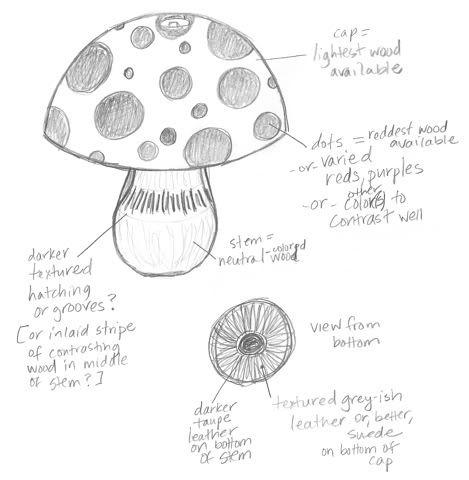 cap =
lightest wood
available
dots = reddest wood
available
-or- varied
reds, purples
-or- other
color(s) to
contrast well
stem =
neutral-colored
wood
darker
textured
hatching
or grooves?
[or inlaid stripe
of contrasting
wood in middle
of stem?]
view from
bottom
darker
taupe
leather
on bottom
of stem
textured grey-ish
leather or, better,
suede
on bottom of
cap